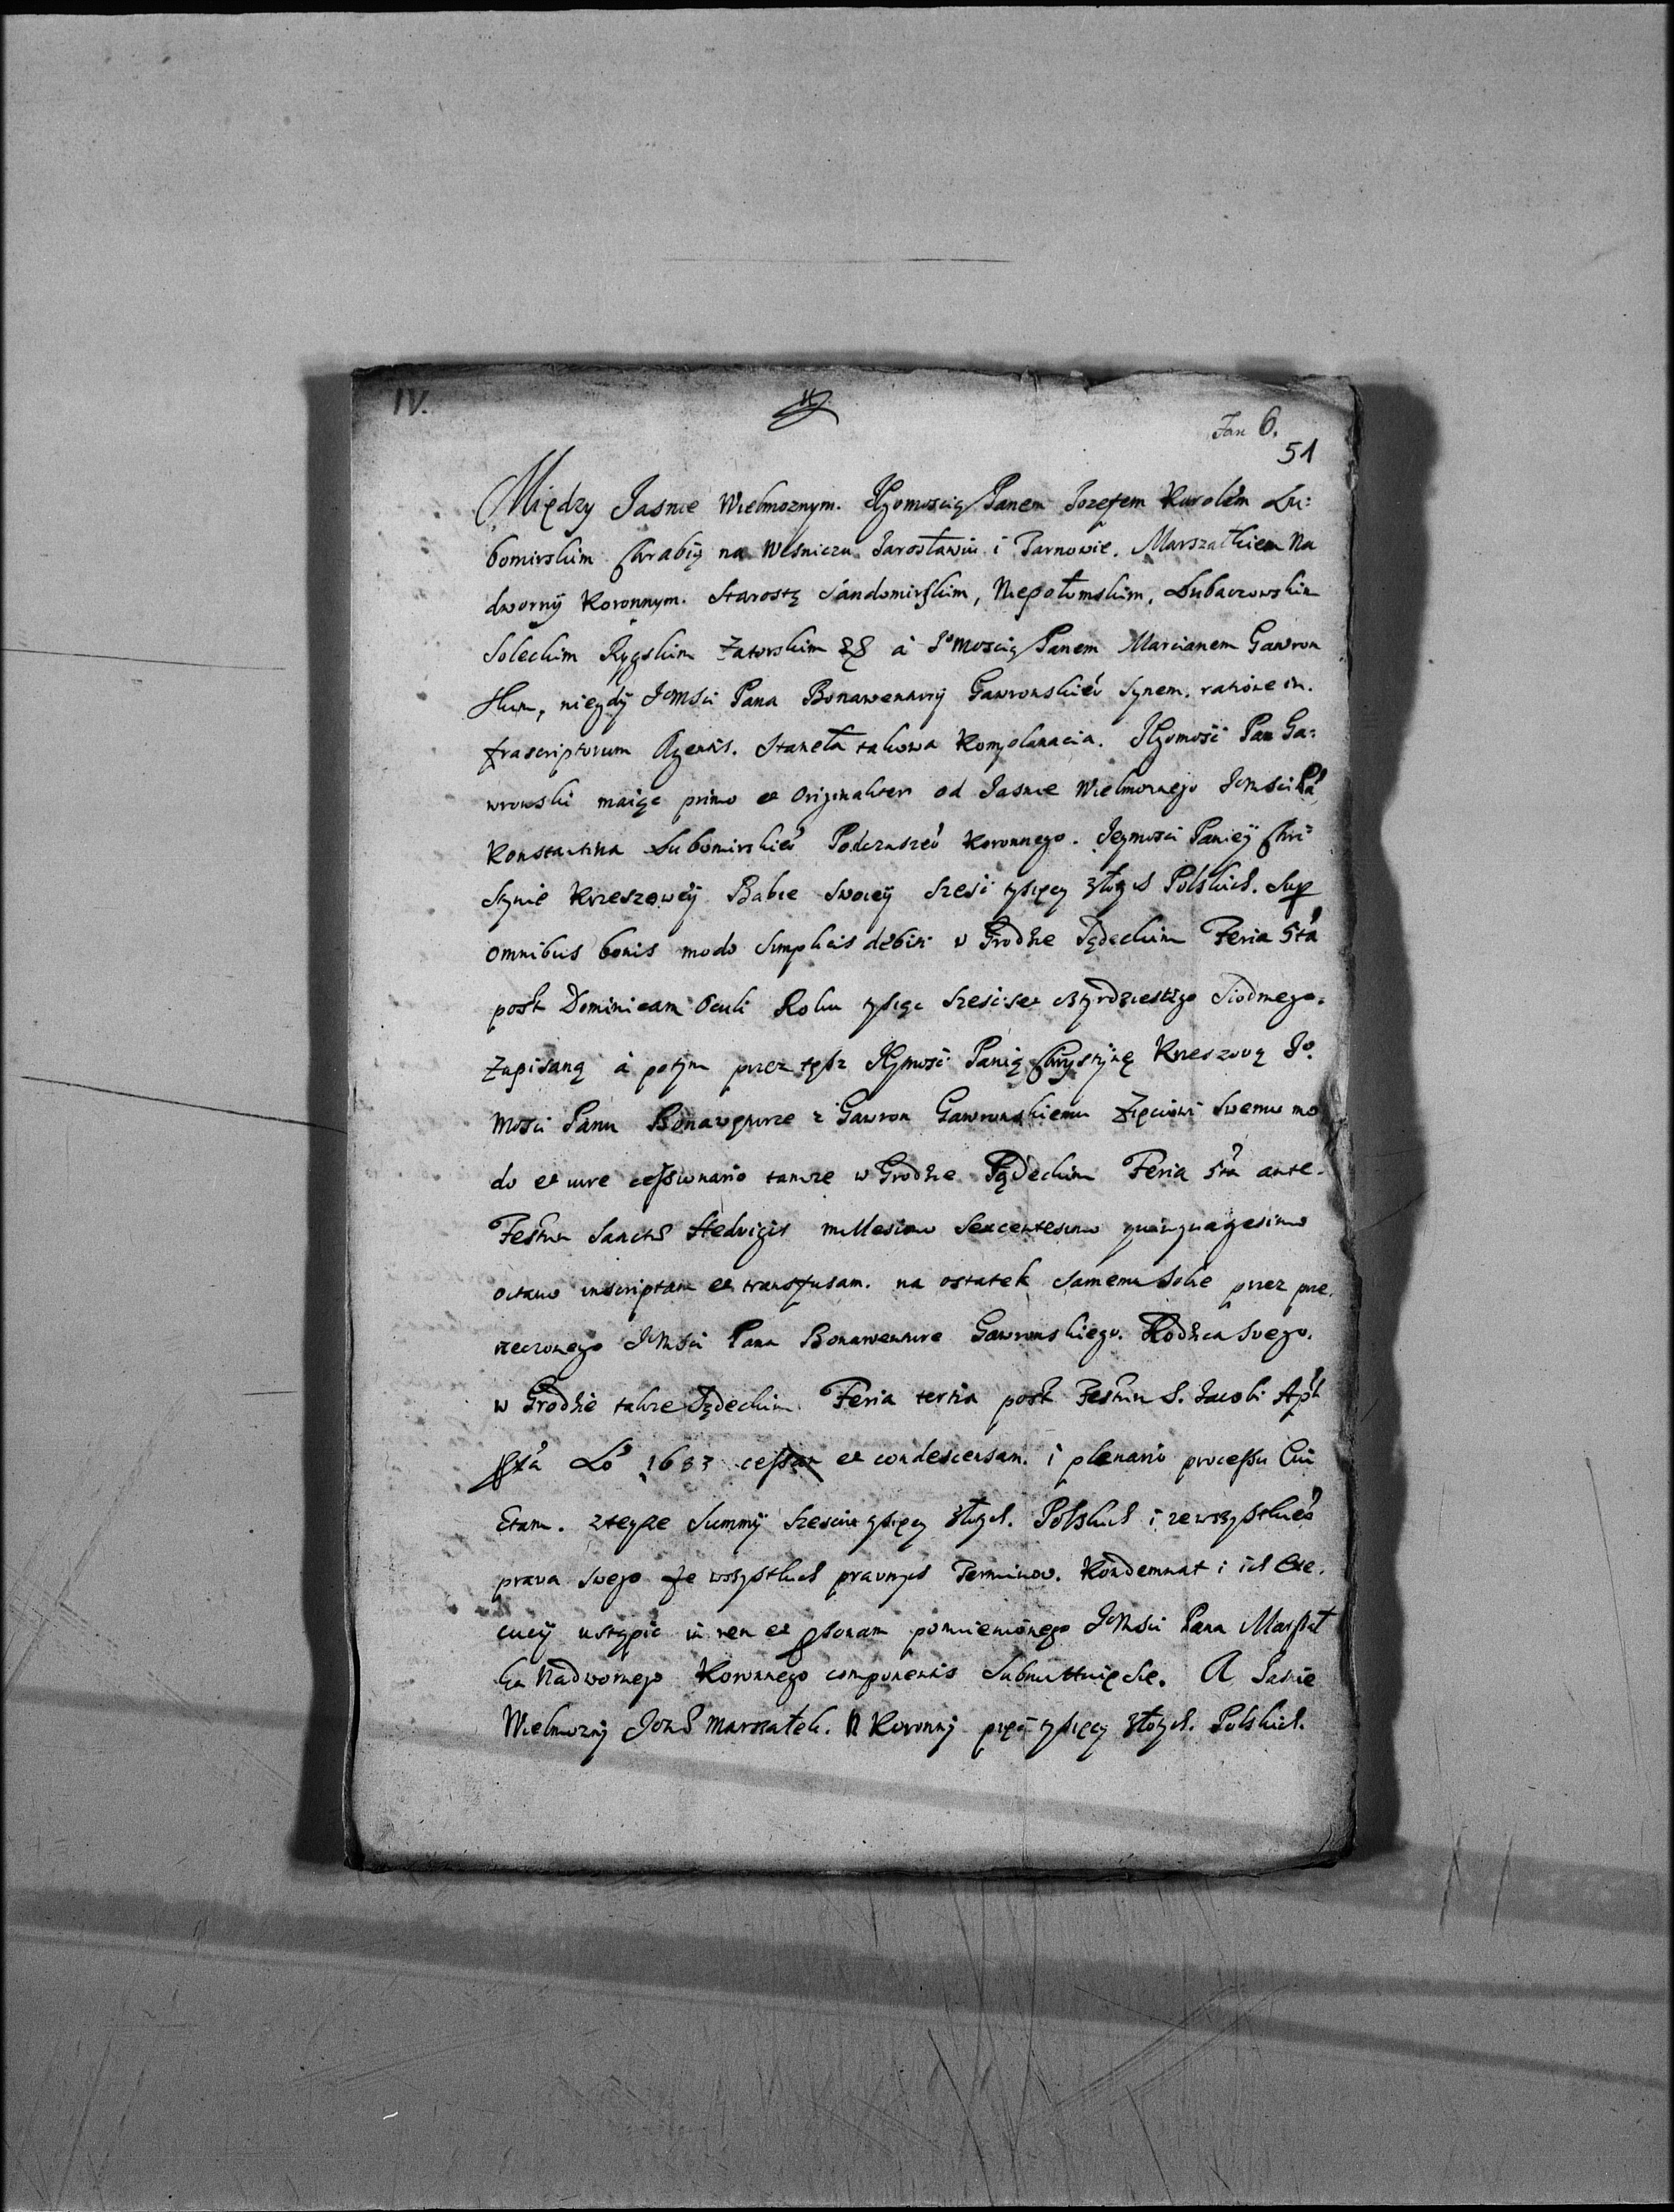 IV.
Jan 6.
51
Między Jasnie Wielmoznym. Jegomoscią Panem Jozefem Karolem Lu:
bomirskim Chrabią na Wisniczu Jarosławiu i Tarnowie. Marszałkiem Na
dworny Koronnym. Starostą Sandomirskim, Niepołomskim, Lubaczowskim
Soleckim Rygskim Zatorskim &c a Jomoscią Panem Marcianem Gawron
skim, niegdy Jemsci Pana Bonawentury Gawronskieo Synem. ratione in.
frascriptorum Agentis. Staneła takowa Komplanacia. Jegomosć Pan Ga:
wronski maiąc primo et Originaliter od Jasnie Wielmoznego Jemsci Pa
Konstantina Lubomirskieo Podczaszeo Koronnego. Jeymosci Paniey Chri
Stynie Krzeszowey Babie Swoiey Szesc tysięcy złotych Polskich. Sup
omnibus bonis modo Simplicis debiti w Grodzie Sądeckim Feria 5ta
post Dominicam Oculi Roku tysiąc Szescset cztyrdziestego Siodmego.
Zapisaną a potym przez tęsz Jeymosć Panią Chrystynę Krzeszową Jo.
Mosci Panu Bonawęturze z Gawron Gawronskiemu Zięciowi Swemu mo
do et iure cessionario tamze w Grodzie Sądeckim Feria 5ta ante.
Festum Sanctæ Hedvigis millesimo Sexcentesimo quinquagesimo
octavo inscriptam et transfusam. na ostatek Samemu Sobie przez prze.
rzeczonego Jemsci Pana Bonawenture Gawronskiego. Rodzica Swego.
w Grodzie takze Sądeckim Feria tertia post Festum S. Jacobi Apli
1683 cessam et condescensam. i plenario processu
Ctam. zteyze Summy Szesciu tysięcy złotych. Polskich i ze wszystkieo
prawa Swego ze wszystkich prawnych Terminow. Kondemnat i ich Exe.
cucij ustąpic in rem et personam pomienionego Jemsci Pana Marszał
ka Nadwornego Koronnego componentis Submittuię Sie. A Jasnie
Wielmozny Marszałek. N Koronny pięć tysięcy złotych. Polskich.